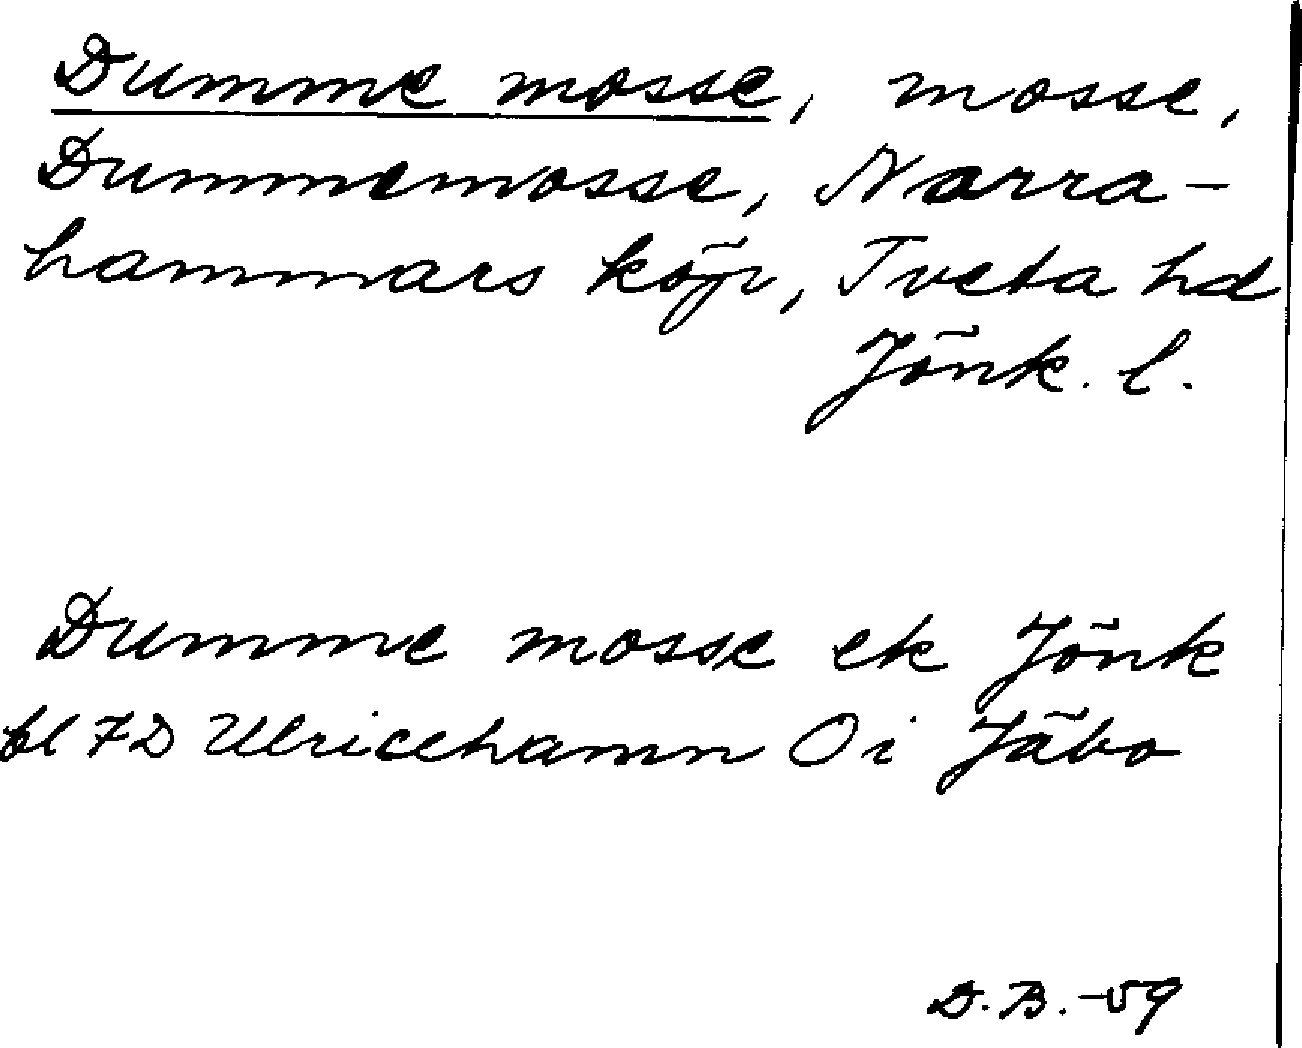 Dumme mosse, mosse,
Dummemosse, Norra-
hammars köp, Tveta hd
Jönk. l.
Dumme mosse ek Jönk
bl 7D Ulricehamn Oi Jäbo
D.B.-59